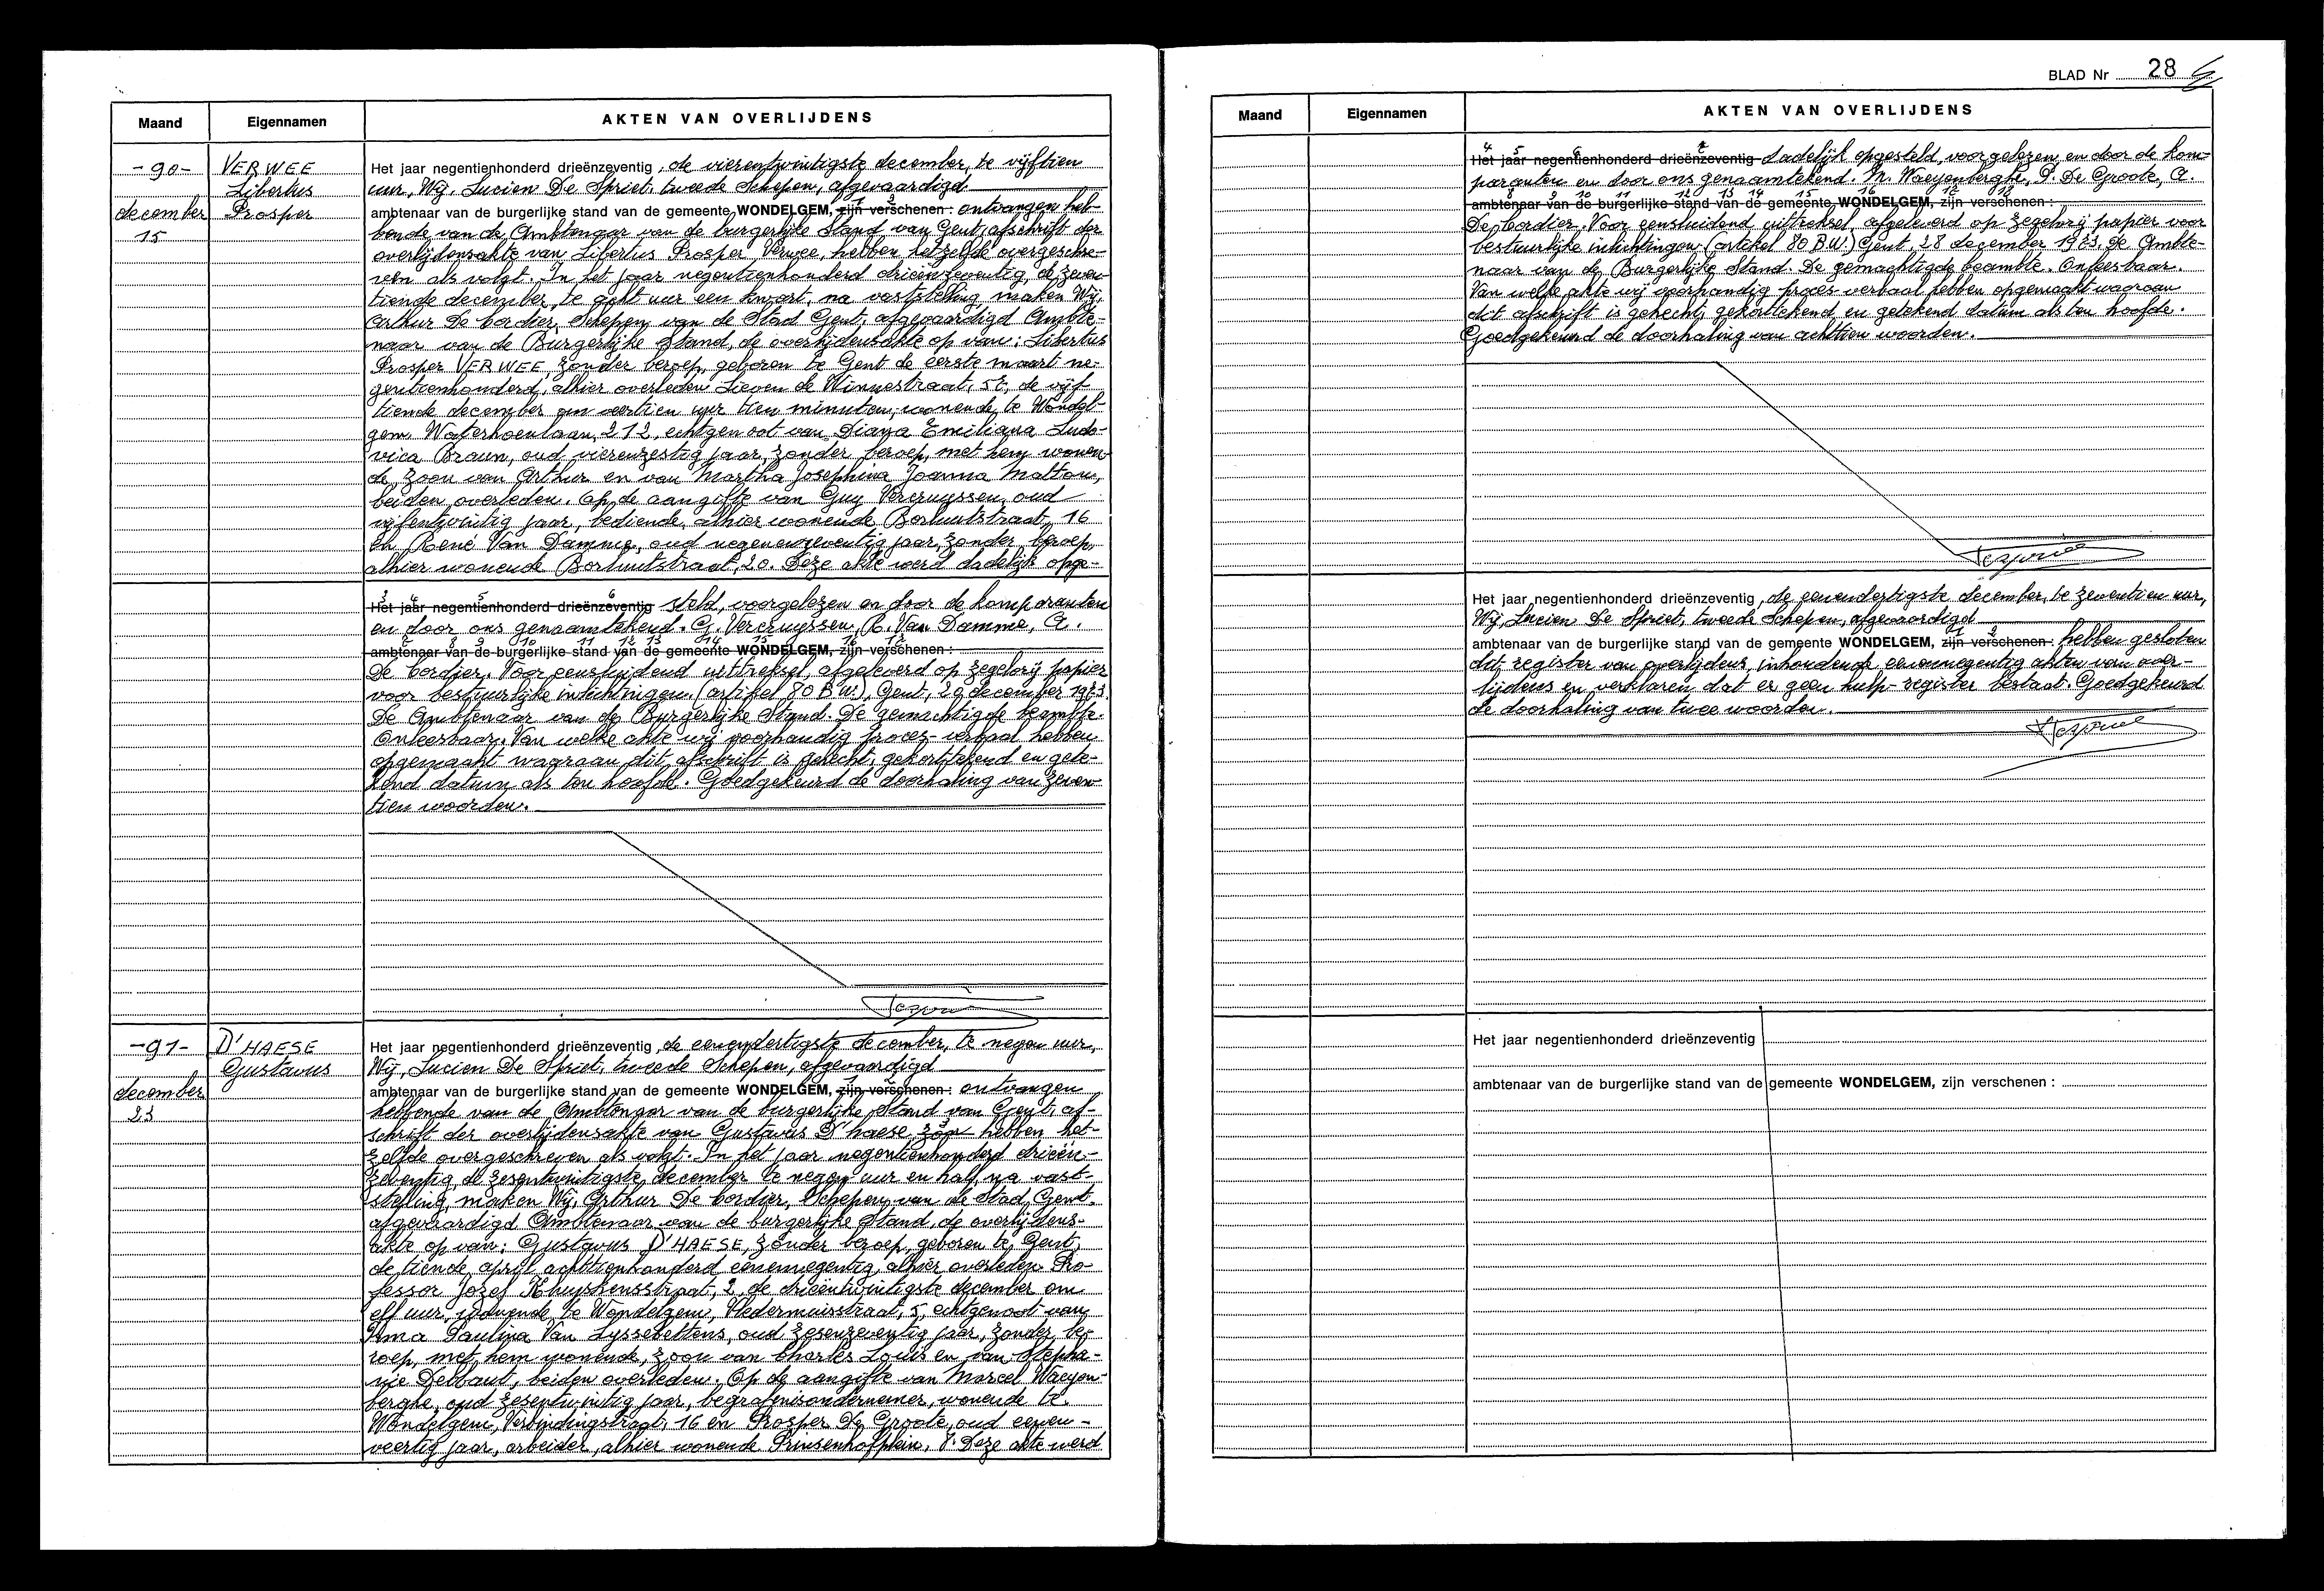 Maand
Eigennamen
AKTEN VAN OVERLIJDENS
-90-
december
15
VERWEE
Libertus
Prosper
Het jaar negentienhonderd drieënzeventig, de vierentwintigste december, te vijftien
uur, Wij, Lucien De Spriet, tweede Schepen, afgevaardigd
ambtenaar van de burgerlijke stand van de gemeente WONDELGEM, zijn verschenen: ontvangen heb-
bende van de Ambtenaar van de burgerlijke Stand van Gent, afschrift der
overlijdensakte van Libertus Prosper Verwee, hebben hetzelfde overgeschre-
ven als volgt. In het jaar negentienhonderd drieënzeventig, de zeven-
tiende december, te acht uur een kwart, na vaststelling maken Wij,
Arthur De Cordier, Schepen van de Stad Gent, afgevaardigd Ambte-
naar van de Burgerlijke Stand, de overlijdensakte op van: Libertus
Prosper VERWEE, zonder beroep, geboren te Gent de eerste maart ne-
gentienhonderd, alhier overleden Lieven de Winnestraat, de vijf
tiende december om veertien uur tien minuten, wonende te Wondel-
gem, Waterhoenlaan, 212, echtgenoot van Diana Emiliana Ludo-
vica Braun, oud vierenzestig jaar, zonder beroep, met hem wonen-
de, zoon van Arthur en van Martha Josephina Joanna Mattous,
beiden overleden. Op de aangifte van Guy Vercruyssen, oud
vijfentwintig jaar, bediende, alhier wonende Borluutstraat, 16
en René Van Damme, oud negenenzeventig jaar, zonder beroep,
alhier wonende Borluutstraat, 20. Deze akte werd dadelijk opge-
3 4 5 6
Het jaar negentienhonderd drieënzeventig steld, voorgelezen en door de komparanten
en door ons genaamtekend. G. Vercruyssen, R. Van Damme, A.
ambtenaar van de burgerlijke stand van de gemeente WONDELGEM, zijn verschenen:
De Cordier. Voor eensluidend uittreksel, afgeleverd op zegelvrij papier
voor bestuurlijke inlichtingen. (artikel 80 B.W.), Gent, 20 december 1973.
De Ambtenaar van de Burgerlijke Stand. De gemachtigde beambte.
Onleesbaar. Van welke akte wij voorhandig proces-verbaal hebben
opgemaakt waaraan dit afschrift is gehecht, gekorttekend en gete-
kend datum als ten hoofde. Goedgekeurd de doorhaling van zeven-
tien woorden.
-91-
december
23
D'HAESE
Gustavus
Het jaar negentienhonderd drieënzeventig, de eenendertigste december, te negen uur,
Wij, Lucien De Spriet, tweede Schepen, afgevaardigd
ambtenaar van de burgerlijke stand van de gemeente WONDELGEM, zijn verschenen: ontvangen
hebbende van de Ambtenaar van de burgerlijke Stand van Gent, af-
schrift der overlijdensakte van Gustavus D'haese hebben het-
zelfde overgeschreven als volgt. In het jaar negentienhonderd drieën-
zeventig, de zesentwintigste december te negen uur en half, na vast-
stelling, maken Wij, Arthur De Cordier, Schepen van de Stad Gent,
afgevaardigd Ambtenaar van de burgerlijke Stand, de overlijdens-
akte op van: Gustavus D'HAESE, zonder beroep, geboren te Gent,
de tiende april achttienhonderd eenennegentig, alhier overleden Pro-
fessor Jozef Kluyskensstraat, 2, de drieëntwintigste december om
elf uur, wonende te Wondelgem, Vledermuisstraat, 5, echtgenoot van
Irma Paulina Van Lyssebettens, oud zesenzeventig jaar, zonder be-
roep, met hem wonende, zoon van Charles Louis en van Stepha-
nie Debbaut, beiden overleden. Op de aangifte van Marcel Waeyen-
berghe, oud zesentwintig jaar, begrafenisondernemer, wonende te
Wondelgem, Verbindingstraat, 16 en Prosper De Groote, oud eenen-
veertig jaar, arbeider, alhier wonende Prinsenhofplein, 7. Deze akte werd
BLAD Nr 28
Maand
Eigennamen
AKTEN VAN OVERLIJDENS
4 5 6 7
Het jaar negentienhonderd drieënzeventig dadelijk opgesteld, voorgelezen en door de kom-
paranten en door ons genaamtekend. M. Waeyenberghe, P. De Groote, A.
8 9 10 11 12 13 14 15 16 17 18
ambtenaar van de burgerlijke stand van de gemeente WONDELGEM, zijn verschenen:
De Cordier. Voor eensluidend uittreksel, afgeleverd op zegelvrij papier voor
bestuurlijke inlichtingen (artikel 80 B.W.) Gent, 28 december 1973. De Ambte-
naar van de Burgerlijke Stand. De gemachtigde beambte. Onleesbaar.
Van welke akte wij voorhandig proces-verbaal hebben opgemaakt waaraan
dit afschrift is gehecht, gekorttekend en getekend datum als ten hoofde.
Goedgekeurd de doorhaling van achttien woorden.
Het jaar negentienhonderd drieënzeventig, de eenendertigste december, te zeventien uur,
Wij, Lucien De Spriet, tweede Schepen, afgevaardigd
ambtenaar van de burgerlijke stand van de gemeente WONDELGEM, zijn verschenen: hebben gesloten
dit register van overlijdens, inhoudende eenennegentig akten van over-
lijdens en verklaren dat er geen hulp-register bestaat. Goedgekeurd
de doorhaling van twee woorden.
Het jaar negentienhonderd drieënzeventig
ambtenaar van de burgerlijke stand van de gemeente WONDELGEM, zijn verschenen: